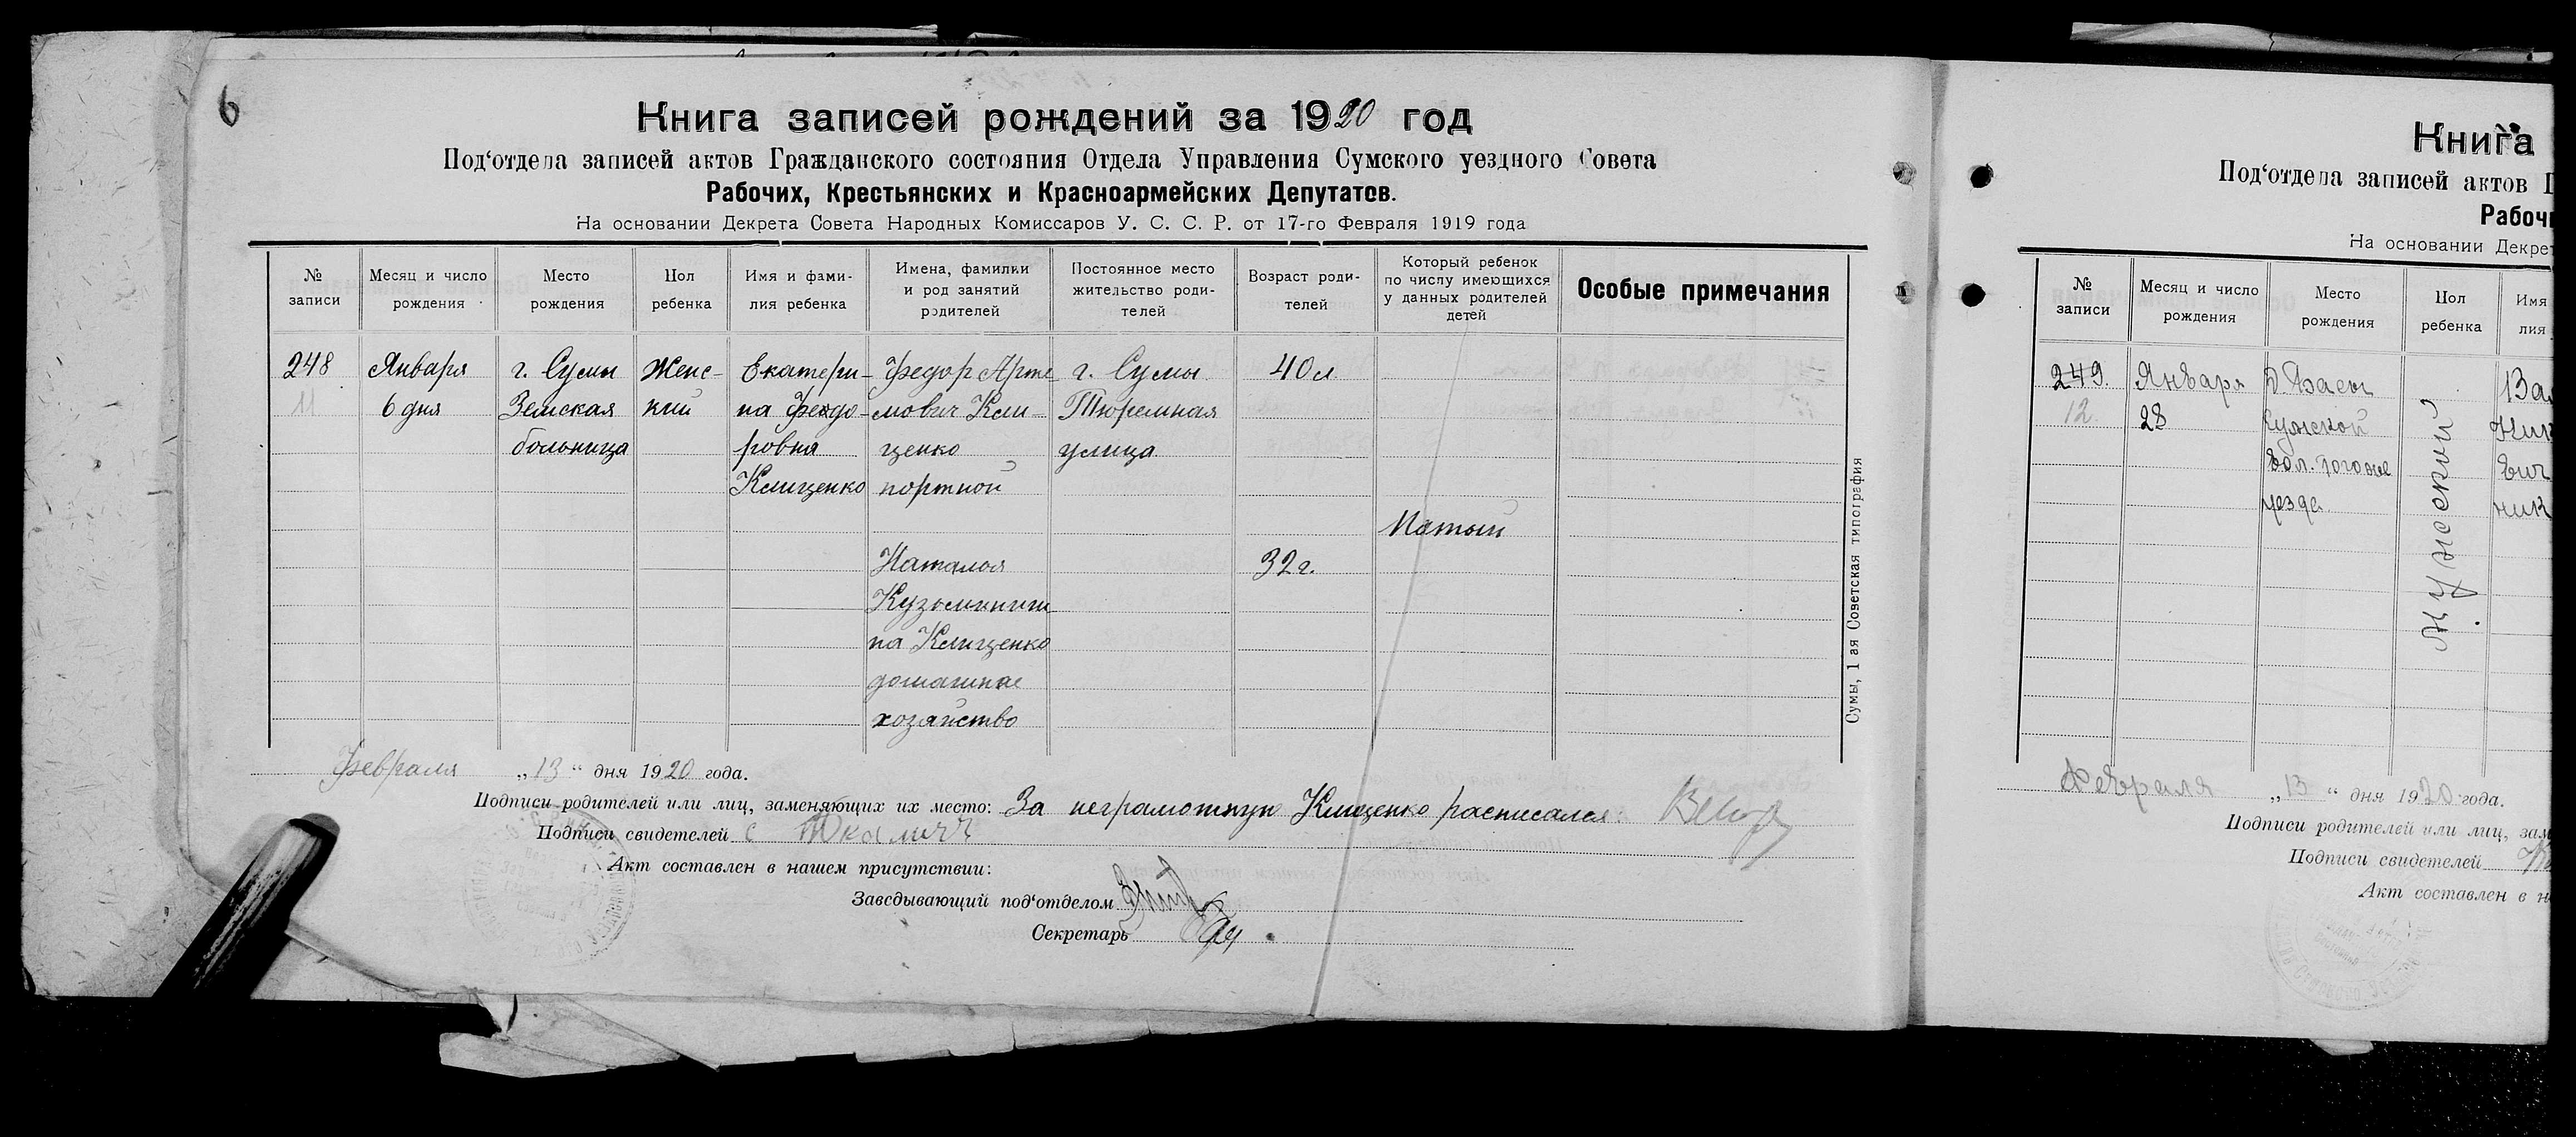 6
Книга записей рождений за 1920 год
Под‘отдела записей актов Гражданского состояния Отдела Управления Сумского уездного Совета
Рабочих, Крестьянских и Красноармейских Депутатов.
На основании Декрета Совета Народных Комиссаров У. С. С. Р. от 17-го Февраля 1919 года
№ записи
Месяц и число рождения
Место рождения
Пол ребенка
Имя и фами-
лия ребенка
Имена, фамилии
и род занятий
родителей
Постоянное место
жительство роди-
телей
Возраст роди-
телей
Который ребенок
по числу имеющихся
у данных родителей
детей
Особые примечания
248
11
Января
6 дня
г. Сумы
Земская
больница
Женс-
кий
Екатери-
на Федо-
ровна
Клищенко
Федор Арте-
мович Кли-
щенко
портной
Наталья
Кузьминиш-
на Клищенко
домашнее
хозяйство
г. Сумы
Тюремная
улица
40 л.
32 г.
Пятый
Сумы, 1 ая Советская типография
Февраля „13“ дня 1920 года.
Подписи родителей или лиц, заменяющих их место: За неграмотную Клищенко расписался
Подписи свидетелей
Акт составлен в нашем присутствии:
Заведывающий под‘отделом
Секретарь
Книга
Под‘отдела записей актов Г
Рабочи
На основании Декрет
№ записи
Месяц и число рождения
Место рождения
Пол ребенка
Имя
лия
249.
12.
Января
28
уезда
мужской
Февраля „13“ дня 1920 года.
Подписи родителей или лиц, зам
Подписи свидетелей
Акт составлен в н